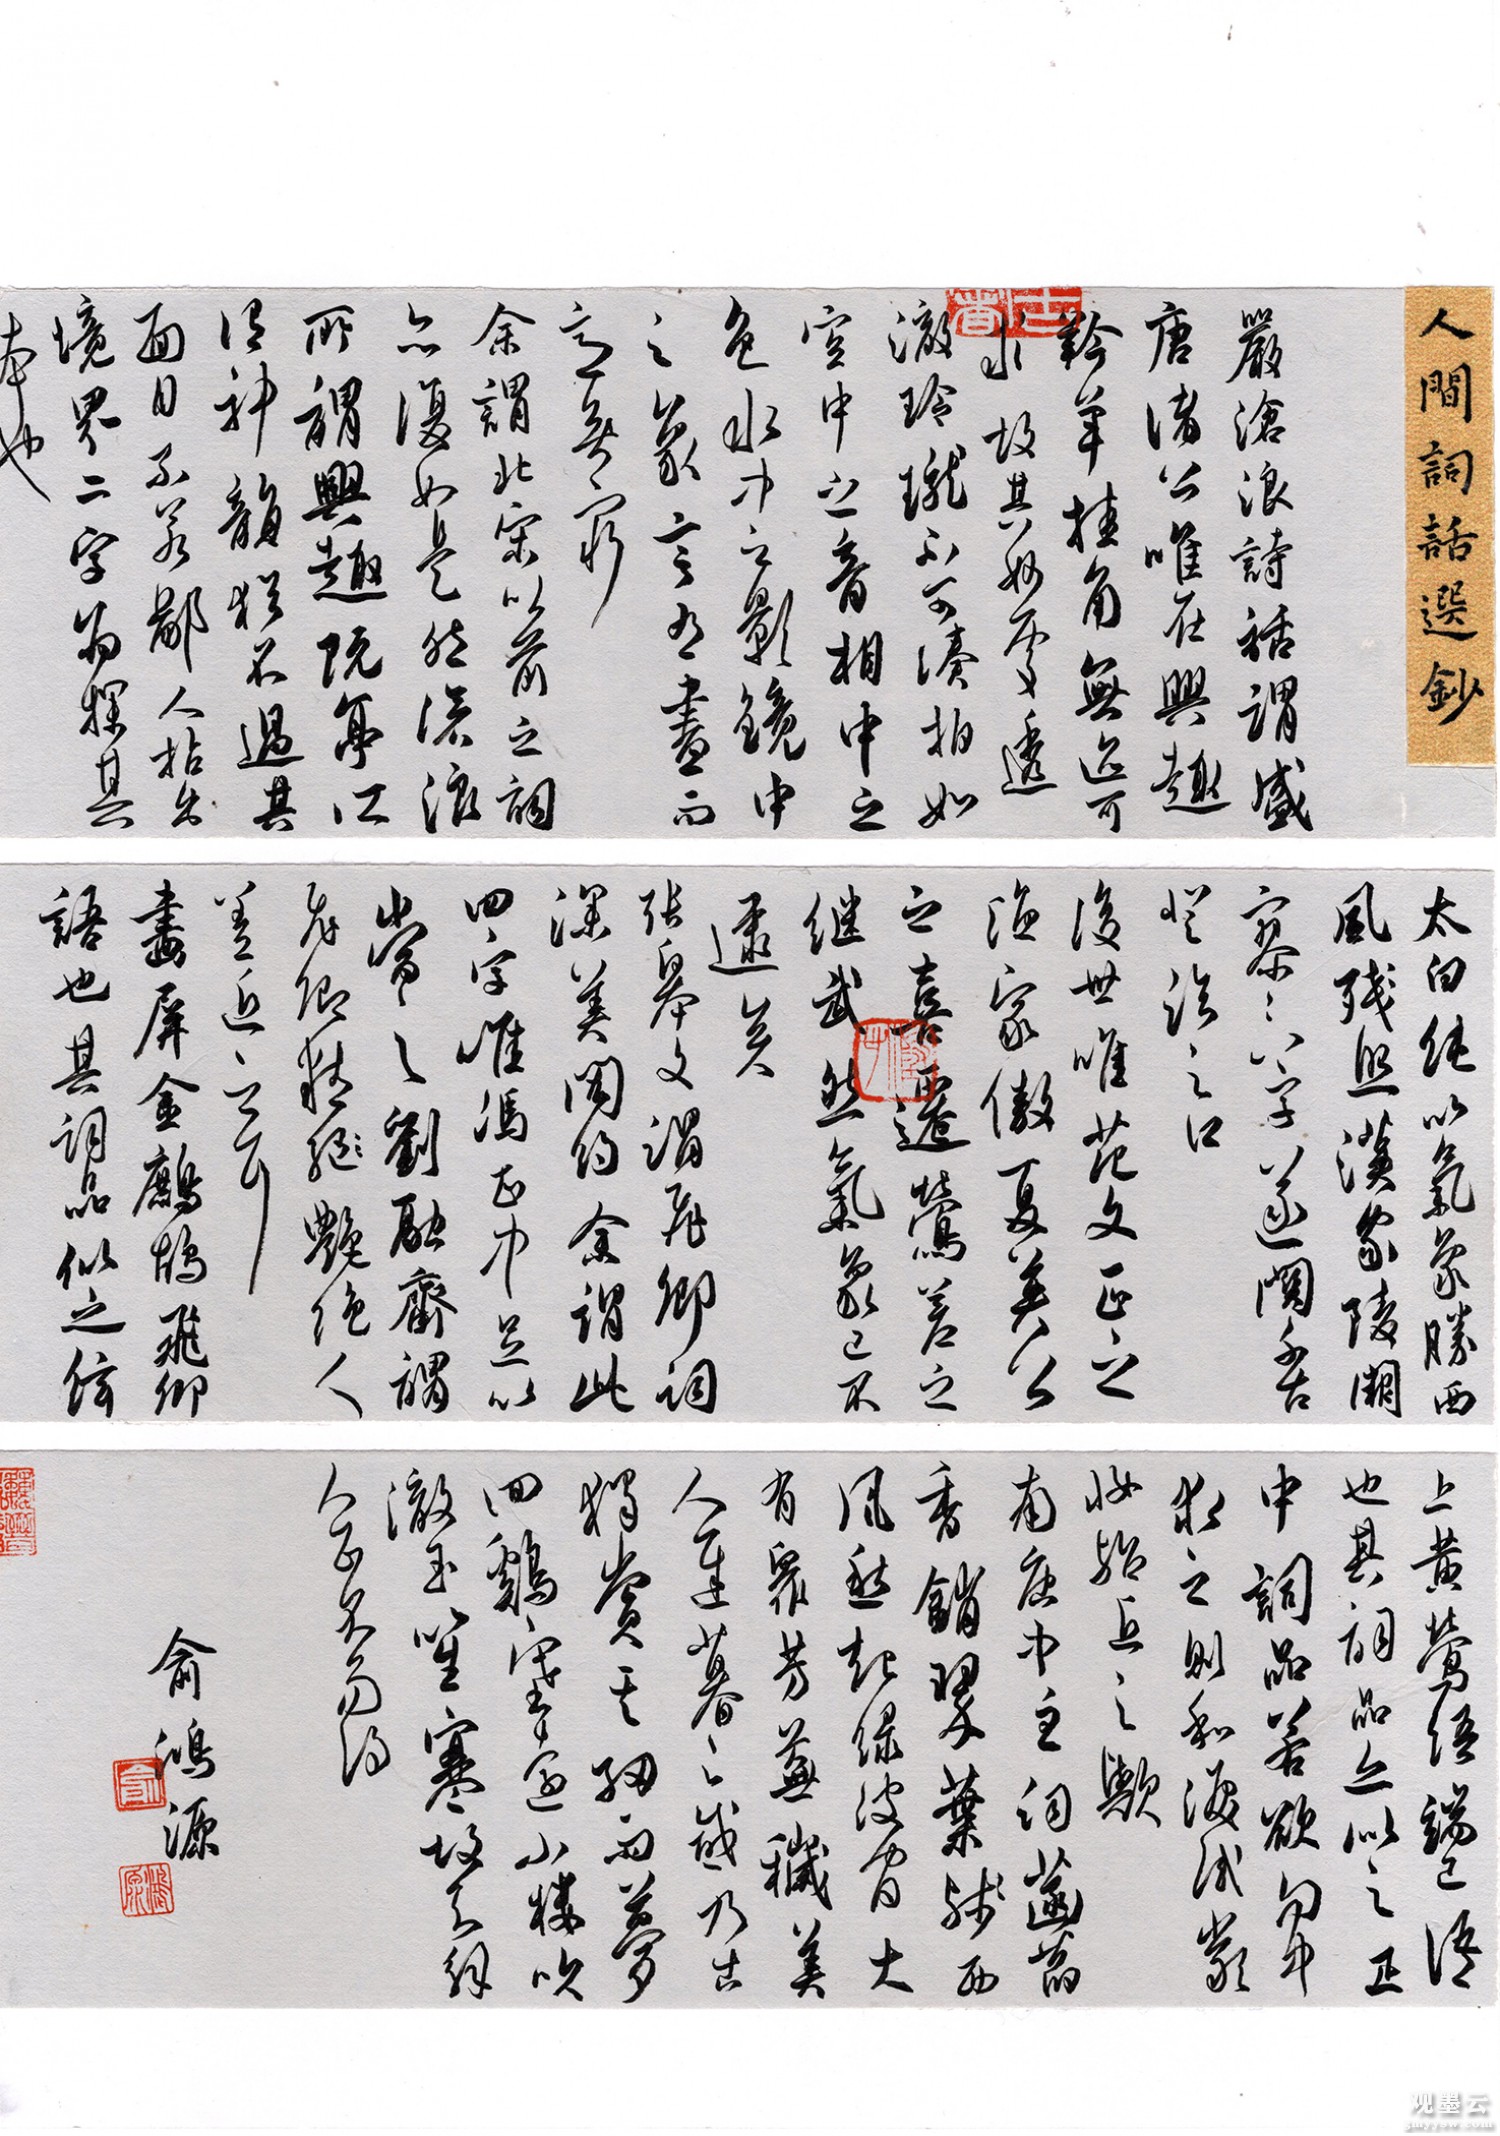 人間詞話選鈔
嚴滄浪詩話謂盛
唐諸公唯在興趣
羚羊挂角無迹可
求故其妙處透
澈玲瓏不可湊拍如
空中之音相中之
色水中之影鏡中
之象言有盡而
意無窮
余謂北宋以前之詞
亦復如是然滄浪
所謂興趣阮亭
謂神韻猶不過其
面目不若鄙人拈出
境界二字為探其
本也
太白純以氣象勝西
風殘照漢家陵闕
寥寥八字遂關千古
登臨之口
後世唯范文正之
漁家傲夏英公
之喜遷鶯差
继武然氣象已不
逮矣
張皋文謂飛卿詞
深美閎約余謂此
四字唯馮正中足以
當之劉融齋謂
飛卿精艷絕人
差近之耳
畫屏金鷓鴣飛卿
語也其詞品似之弦
上黃鶯語端己語
也其詞品亦似之正
中詞品若欲句中
求之則和淚試嚴
妝殆近之歟
南唐中主詞菡萏
香銷翠葉殘西
風愁起綠波間大
有眾芳蕪穢美
人遲暮之感乃古
獨賞其細雨夢
回雞塞遠小樓吹
澈玉笙寒故知解
人正不易得
俞鴻源
观墨云